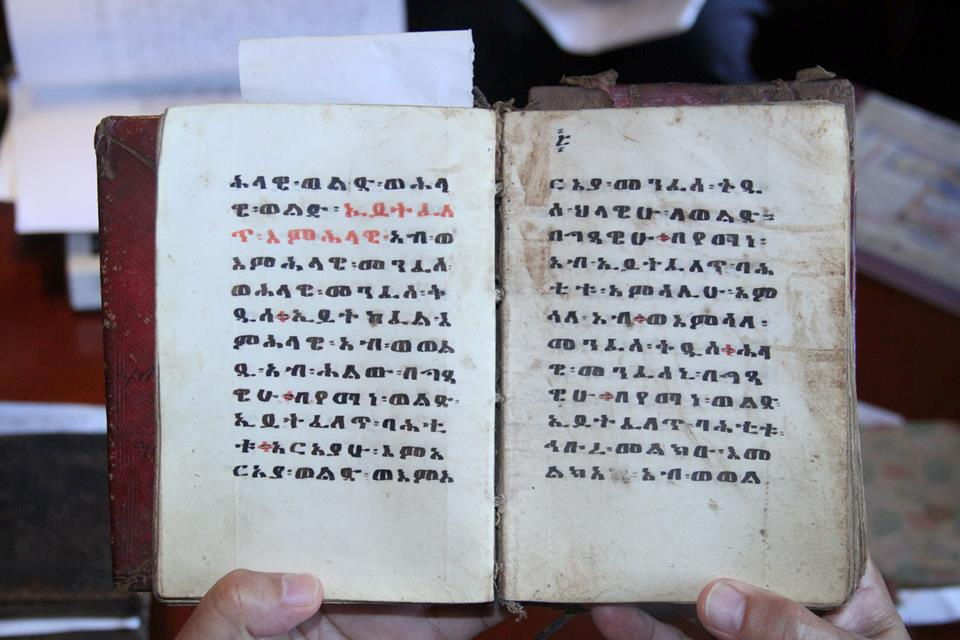 ሕላዊ፡ወልድ፡ወሕላ
ዊ፡ወልድ፡ኢይትፈለ
ጥ፡እምሕላዊ፡አብ፡ወ
እምሕላዊ፡መንፈስ፡
ወሕላዊ፡መንፈስ፡ቅ
ዱስ፡ኢይትከፈል፡እ
ምሕላዊ፡አብ፡ወወል
ዱ፡አብ፡ሕልው፡በገጻ
ዊሁ፡በየማነ፡ወልድ፡
ኢይትፈለጥ፡ባሕቲ
ቱ፡አርአያሁ፡እምአ
ርአያ፡ወልድ፡ወእምአ
ርአያ፡መንፈስ፡ቅዱ
ስ፡ህላዊሁ፡ለወልድ።
በገጻዊሁ፡በየማነ፡
አብ፡ኢይትፈለጥ፡ባሕ
ቲቱ፡አምሳሊሁ፡እም
ሳለ፡አብ፡ወእምሳለ፡
መንፈስ፡ቅዱስ፡ሕላ
ዊ፡መንፈስኒ፡በገጻ
ዊሁ፡በየማነ፡ወልድ፡
ኢይትፈለጥ፡ባሕቲቱ፡
መልክዑ፡እመ
ልክአ፡አብ፡ወወል